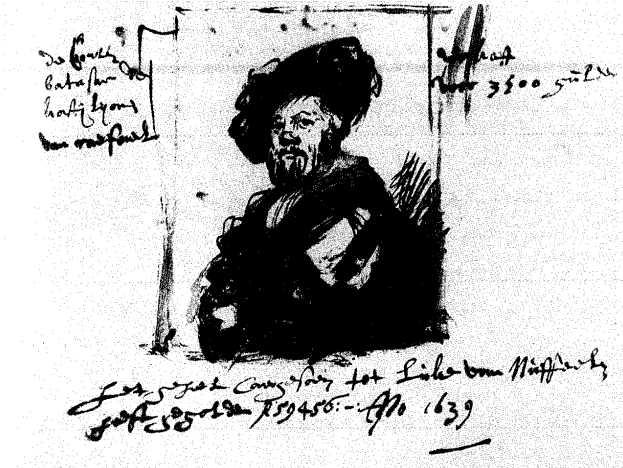 de Conte
batasar de
kastijlijone
van raefael
verkoft
voor 3500 gulden
het geheel Caergesoen tot Luke van Nuffeelen
heeft gegolden f 59456:- Ano 1639